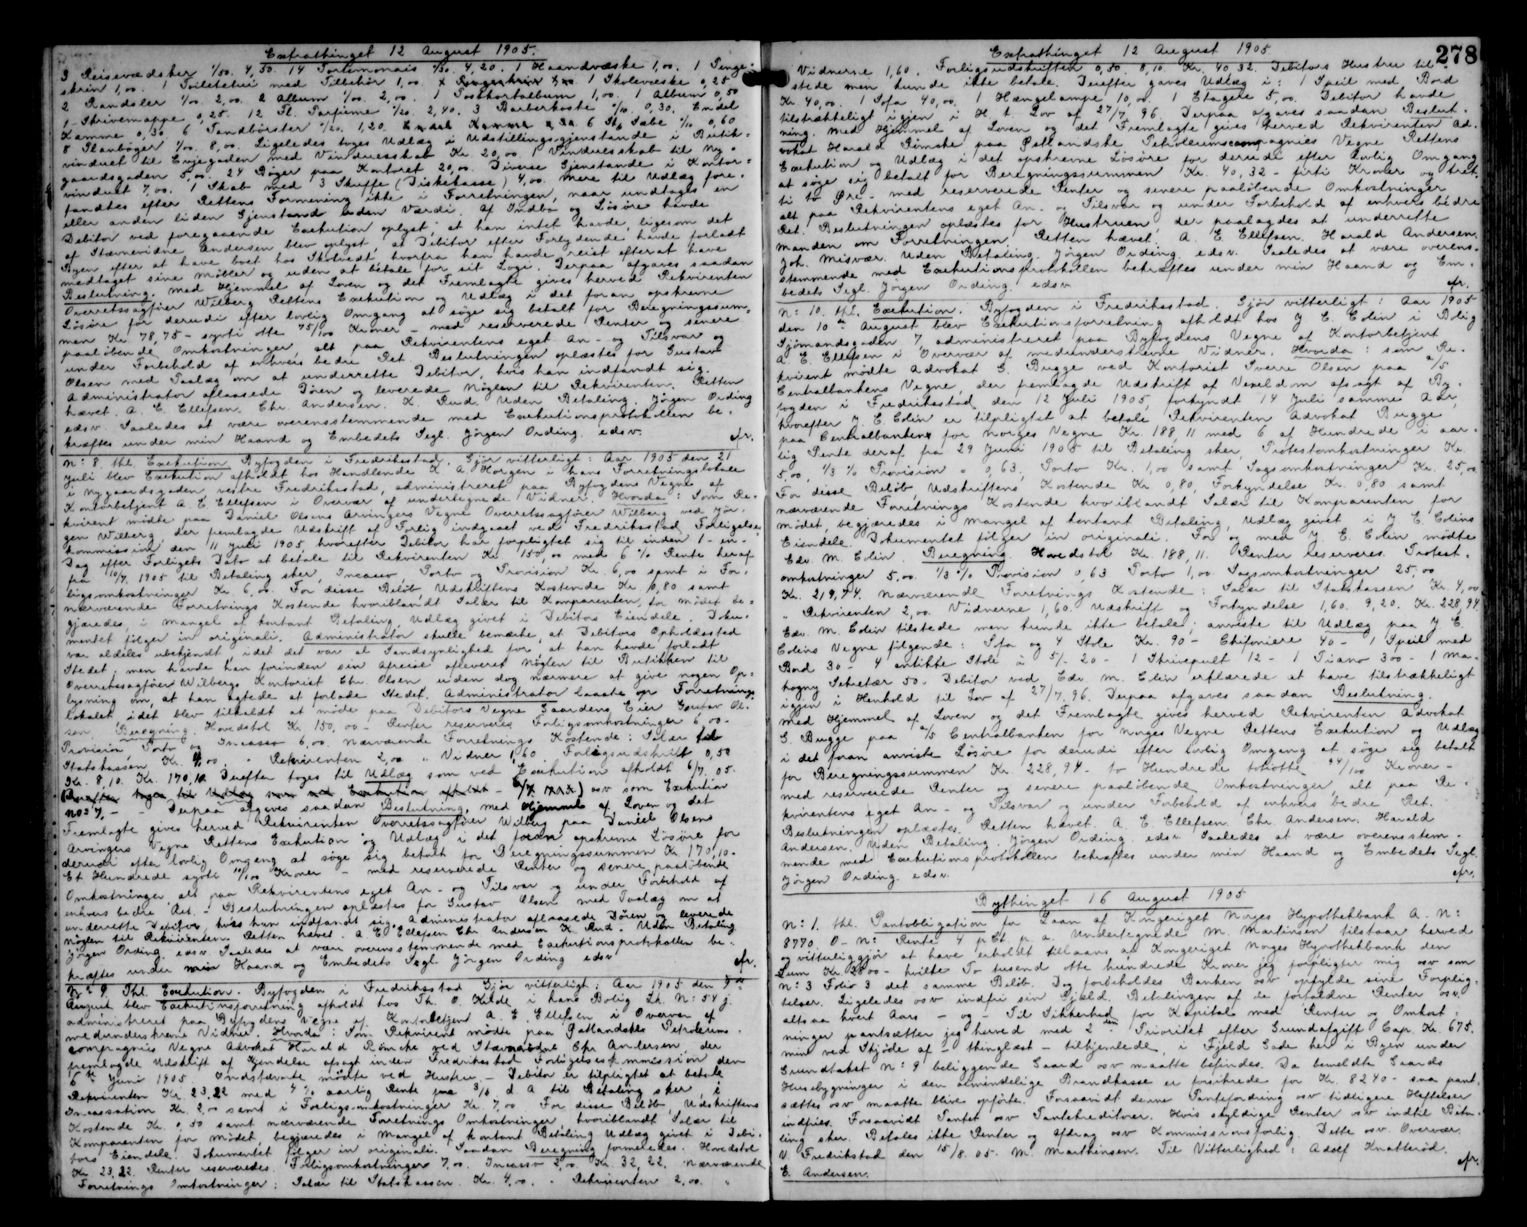 Extrathinget 12 August 1905.
3 Reisevædsker 1/50. 4,50. 14 Portemonais 4,20. 1 Haandvæske 1,00. 1 Penge-
skrin 1,00. 1 Toiletetui med Tilbehör 1,00. 1 Skolevæske 0,25
2 Randsler 1/00. 2,00. 2 Album 1/00. 2,00. 1 Postkortalbum 1,00. 1 Album 0,50
1 Skrivemappe 0,25. 12 Fl. Parfume 2,40. 3 Barberkoste 0,30. Endel
Kamme 0,30 6 Tandbörster 1,20. 6 Sæbe 0,60
8 8,00. Ligeledes toges Udlæg i Udstillingsgjenstande i Butik-
vinduet til med Vinduesskab Kr 20,00. Vinduesskab til Ny-
gaardsgaden 5,00. 24 Bøger paa Kontoret 20,00. Diverse Gjenstande i Kontor-
vinduet 7,00. 1 Skab med 3 Skuffe (Diskekasse) 4,00. Mere til Udlæg fore-
fandtes efter Rettens Formening ikke i Forretningen, naar undtages en
eller anden liden Gjenstand uden Værdi. Af Indbo og Lösöre havde
Debitor ved foregaaende Exekution oplyst, at han intet havde, ligesom det
af Stævnevidne Andersen blev oplyst, at Debitor efter Forlydende havde forladt
Byen efter at have boet hos Skolvedt hvorfra han havde reist efterat have
medtaget sine Möbler og uden at betale for sit Logi. Derpaa afgaves saadan
Beslutning. Med Hjemmel af Loven og det Fremlagte gives herved Rekvirenten
Overretssagförer Wilberg Rettens Exekution og Udlæg i det foran opskrevne
Lösöre for derudi efter lovlig Omgang at söge sig betalt for Beregningssum-
men Kr 78,75 - sytti otte 75/100 Kroner - med reserverede Renter og senere
paalöbende Omkostninger, alt paa Rekvirentens eget An- og Tilsvar og
under Forbehold af enhvers bedre Ret. Beslutningen oplæstes for Gustav
Olsen med Paalæg om at underrette Debitor, hvis han indfandt sig.
Administrator aflaasede Dören og leverede Nöglen til Rekvirenten. Retten
hævet. A. E. Ellefsen. Chr. Andersen. K. Rud. Uden Betaling. Jörgen Ording
edsv. Saaledes at være overensstemmende med Exekutionsprotokollen be-
kræftes under min Haand og Embedets Segl. Jörgen Ording edsv.
N: 8. thl. Exekution. Byfogden i Fredriksstad. Gjör vitterligt: Aar 1905 den 21
Juli blev Exekution afholdt hos Handlende K. A. Horgen i hans Forretningslokale
i Nygaardsgaden, vestre Fredriksstad, administreret paa Byfogdens Vegne af
Kontorbetjent A. E. Ellefsen i Overvær af undertegnede Vidner. Hvorda: Som Re-
kvirent mödte paa Daniel Olsens Arvingers Vegne Overretssagförer Wilberg ved Jör-
gen Wilberg, der fremlagde Udskrift af Forlig indgaaet ved Fredriksstad Forligelses-
kommission den 11 Juli 1905 hvorefter Debitor har forpligtet sig til inden 1 - en -
Dag efter Forligets Dato at betale til Rekvirenten Kr 150,00 med 6 % Rente heraf
fra 10/7. 1905 til Betaling sker, Incasso, Porto og Provision Kr. 6,00 samt i For-
ligsomkostninger Kr. 6,00. For disse Belöb, Udskriftens Kostende Kr 0,80 samt
nærværende Forretnings Kostende hvoriblandt Salær til Komparenten for Mödet be-
gjæredes, i Mangel af kontant Betaling, Udlæg givet i Debitors Eiendele. Doku-
mentet fölger in originali. Administrator skulle bemærke, at Debitors Opholdssted
var aldeles ubekjendt idet det var al Sandsynlighed for, at han havde forladt
Stedet, men havde han forinden sin Afreise afleveret Nöglen til Butikken til
Overretssagförer Wilbergs Kontorist Chr. Olsen uden dog nærmere at give nogen Op-
lysning om, at han agtede at forlade Stedet. Administrator laaste op Forretnings-
lokalet idet blev tilkaldt at möde paa Debitors Vegne Gaardens Eier Gustav Ol-
sen. Beregning: Hovedstol Kr 150,00 - Renter reserveres Forligsomkostninger 6,00 -
Provision Porto og Incasso 6,00. Nærværende Forretnings Kostende: Salær til
Statskassen Kr. 4,00. " Rekvirenten 2,00 " Vidner 1,60 Forligsudskrift 0,50
Kr. 8,10. Kr. 170,10. Derefter toges til Udlæg som ved Exekution afholdt 6/7. 05.
osv som Exekution
No: 7. - - Derpaa afgaves saadan Beslutning. Med Hjemmel af Loven og det
Fremlagte gives herved Rekvirenten Overretssagförer Wilberg paa Daniel Olsens
Arvingers Vegne Rettens Exekution og Udlæg i det foran opskrevne Lösöre for
derudi efter lovlig Omgang at söge sig betalt for Beregningssummen Kr. 170,10 -
Et Hundrede sytti 10/100 Kroner - med reserverede Renter og senere paalöbende
Omkostninger alt paa Rekvirentens eget An- og Tilsvar og under Forbehold af
enhvers bedre Ret. - Beslutningen oplæstes for Gustav Olsen med Paalæg om at
underrette Debitor, hvis han indfandt sig. Administrator aflaasede Dören og leverede
Nöglen til Rekvirenten. Retten hævet. A. E. Ellefsen Chr Andersen K. Rud. Uden Betaling
Jörgen Ording. edsv. Saaledes at være overensstemmende med Exekutionsprotokollen be-
kræftes under min Haand og Embedets Segl. Jörgen Ording edsv.
N: 9. Thl. Exekution. Byfogden i Fredriksstad Gjör vitterligt: Aar 1905 den
August blev Exekutionsforretning afholdt hos Th. O. Kilde i hans Bolig Lit. N: 54 j.
administreret paa Byfogdens Vegne af Kontorbetjent A. E. Ellefsen i Overvær af
medunderskrevne Vidner. Hvorda: Som Rekvirent mödte paa Östlandske Petroleums-
compagnies Vegne Advokat Harald Rönche ved Stævnevidne Chr. Andersen, der
fremlagde Udskrift af Kjendelse afsagt inden Fredriksstad Forligelseskommission den
6te Juni 1905. Indstævnte mödte ved Hustru - Debitor er tilpligtet at betale
Rekvirenten Kr. 23.22 med 4 % aarlig Rente fra 3/6 d A til Betaling sker, i
Incassation Kr. 2,00 samt i Forligsomkostninger Kr. 7,00 For disse Belöb, Udskriftens
Kostende Kr. 0,50 samt nærværende Forretnings Omkostninger hvoriblandt Salær til
Komparenten for Mödet, begjæredes i Mangel af kontant Betaling Udlæg givet i Debi-
tors Eiendele. Dokumentet fölger in originali. Saadan Beregning formeredes. Hovedstol
Kr. 23.22. Renter reserveredes. Forligsomkostninger 7,00. Incasso 2,00. Kr. 32,22. Nærværende
Forretnings Omkostninger: Salær til Statskassen Kr. 4,00. " Rekvirenten 2,00. "
Extrathinget 12 August 1905
278
Vidnerne 1,60. Forligsudskriften 0,50 8,10. Kr. 40,32. Debitors Hustru til-
stede men kunde ikke betale. Derefter gaves Udlæg i: 1 Speil med Bord
Kr. 40,00. 1 Sofa 40,00. 1 Hængelampe 10,00. 1 Etagere 5,00. Debitor havde
tilstrækkeligt igjen i H. t. Lov af 27/7 96. Derpaa afgaves saadan Beslut-
ning. Med Hjemmel af Loven og det Fremlagte gives herved Rekvirenten Ad-
vokat Harald Rönche paa Östlandske Petroleumscompagnies Vegne Rettens
Exekution og Udlæg i det opskrevne Lösöre for derudi efter lovlig Omgang
at söge sig betalt for Beregningssummen Kr. 40,32 - firti Kroner og tret-
ti to Öre - med reserverede Renter og senere paalöbende Omkostninger
alt paa Rekvirentens eget An- og Tilsvar og under Forbehold af enhvers bedre
Ret. Beslutningen oplæstes for Hustruen der paalagdes at underrette
Manden om Forretningen. Retten hævet. A. E. Ellefsen. Harald Andersen.
Joh. Misvær. Uden Betaling. Jörgen Ording. edsv. Saaledes at være overens-
stemmende med Exekutionsprotokollen bekræftes under min Haand og Em-
bedets Segl. Jörgen Ording. edsv.
N: 10. thl. Exekution. Byfogden i Fredriksstad. Gjör vitterligt: Aar 1905
den 10de August blev Exekutionsforretning afholdt hos J E. Edin i Bolig
Sjömandsgaden 7, administreret paa Byfogdens Vegne af Kontorbetjent
A. E. Ellefsen i Overvær af medunderskrevne Vidner. Hvorda: Som Re-
kvirent mödte Advokat G. Bugge ved Kontorist Sverre Olsen paa A/S
Centralbankens Vegne, der fremlagde Udskrift af Vexeldom afsagt af By-
fogden i Fredriksstad den 12 Juli 1905, forkyndt 14 Juli samme Aar,
hvorefter J E. Edin er tilpligtet at betale Rekvirenten Advokat Bugge
paa Centralbanken for Norges Vegne Kr. 188,11 med 6 af Hundrede i aar-
lig Rente deraf fra 29 Juni 1905 til Betaling sker, Protestomkostninger Kr
5,00, 1/3 % Provision 0,63, Porto Kr. 1,00 samt Sagsomkostninger Kr. 25,00
For disse Belöb, Udskriftens Kostende Kr 0,80, Forkyndelse Kr. 0,80 samt
nærværende Forretnings Kostende hvoriblandt Salær til Komparenten for
Mödet, begjæredes i Mangel af kontant Betaling, Udlæg givet i J E. Edins
Eiendele. Dokumentet fölger in originali. For og med J. E. Edin mödte
Edv. M. Edin. Beregning. Hovedstol Kr. 188,11. Renter reserveres. Protest-
omkostninger 5,00 1/3 % Provision 0,63 Porto 1,00 Sagsomkostninger 25,00
Kr. 219,74. Nærværende Forretnings Kostende: Salær til Statskassen Kr 4,00
" Rekvirenten 2,00. Vidnerne 1,60. Udskrift og Forkyndelse 1,60. 9,20. Kr. 228,94
Edv. M. Edin tilstede men kunde ikke betale; anviste til Udlæg paa J E.
Edins Vegne fölgende: Sofa og 4 Stole Kr. 90 - Chifoniere 40 - 1 Speil med
Bord 30 - 4 antikke Stole i 5/- 20 - 1 Skrivepult 12 - 1 Piano 300 - 1 Ma-
hogny Sekretær 50. Debitor ved Edv. M. Edin erklærede at have tilstrækkeligt
igjen i Henhold til Lov af 27/7. 96. Derpaa afgaves saadan Beslutning.
Med Hjemmel af Loven og det Fremlagte gives herved Rekvirenten Advokat
G. Bugge paa A/S Centralbanken for Norges Vegne Rettens Exekution og Udlæg
i det foran anviste Lösöre for derudi efter lovlig Omgang at söge sig betalt
for Beregningssummen Kr 228,94 - to Hundrede totiotte 94/100 Kroner -
med reserverede Renter og senere paalöbende Omkostninger, alt paa Re-
kvirentens eget An- og Tilsvar og under Forbehold af enhvers bedre Ret.
Beslutningen oplæstes. Retten hævet. A. E. Ellefsen. Chr. Andersen. Harald
Andersen. Uden Betaling. Jörgen Ording. edsv. Saaledes at være overensstem-
mende med Exekutionsprotokollen bekræftes under min Haand og Embedets Segl.
Jörgen Ording. edsv.
Bythinget 16 August 1905
N: 1. thl. Pantobligation for Laan af Kongeriget Norges Hypothekbank A. N:
8770. O - N: Rente 4 pCt. p. a. Undertegnede M. Martinsen tilstaar herved
og vitterliggjör at have erholdt tillaans af Kongeriget Norges Hypothekbank den
Sum Kr. 2800 - hvilke To tusend otte hundrede Kroner jeg forpligter mig osv som
N: 3 Folio 3 det samme Belöb. Dog forbeholdes Banken osv opfylde sine Forplig-
telser. Ligeledes osv indfri sin Gjæld. Betalingen af de forfaldne Renter osv.
altsaa hvert Aars - og - Til Sikkerhed for Kapital med Renter og Omkost-
ninger pantsætter jeg herved med 2den Prioritet efter Grundafgift Cap. Kr. 675.
min ved Skjöde af - thinglæst - tilhjemlede, i Fjeld Gade her i Byen under
Grundtakst N: 9 beliggende Gaard osv maatte befindes. Da bemeldte Gaards
Husebygninger i den almindelige Brandkasse er forsikrede for Kr. 8240 - saa pant-
sættes osv maatte blive opförte. Forsaavidt denne Pantefordring osv tidligere Heftelser
indfries. Forsaavidt Pantet osv Pantekreditorer. Hvis skyldige Renter osv indtil Beta-
ling sker. Betales ikke Renter og Afdrag osv Kommissionsforlig. Dette osv. Overvær.
V. Fredrikstad den 15/8. 05. M. Marthinsen. Til Vitterlighed: Adolf Knatteröd.
E. Andersen.